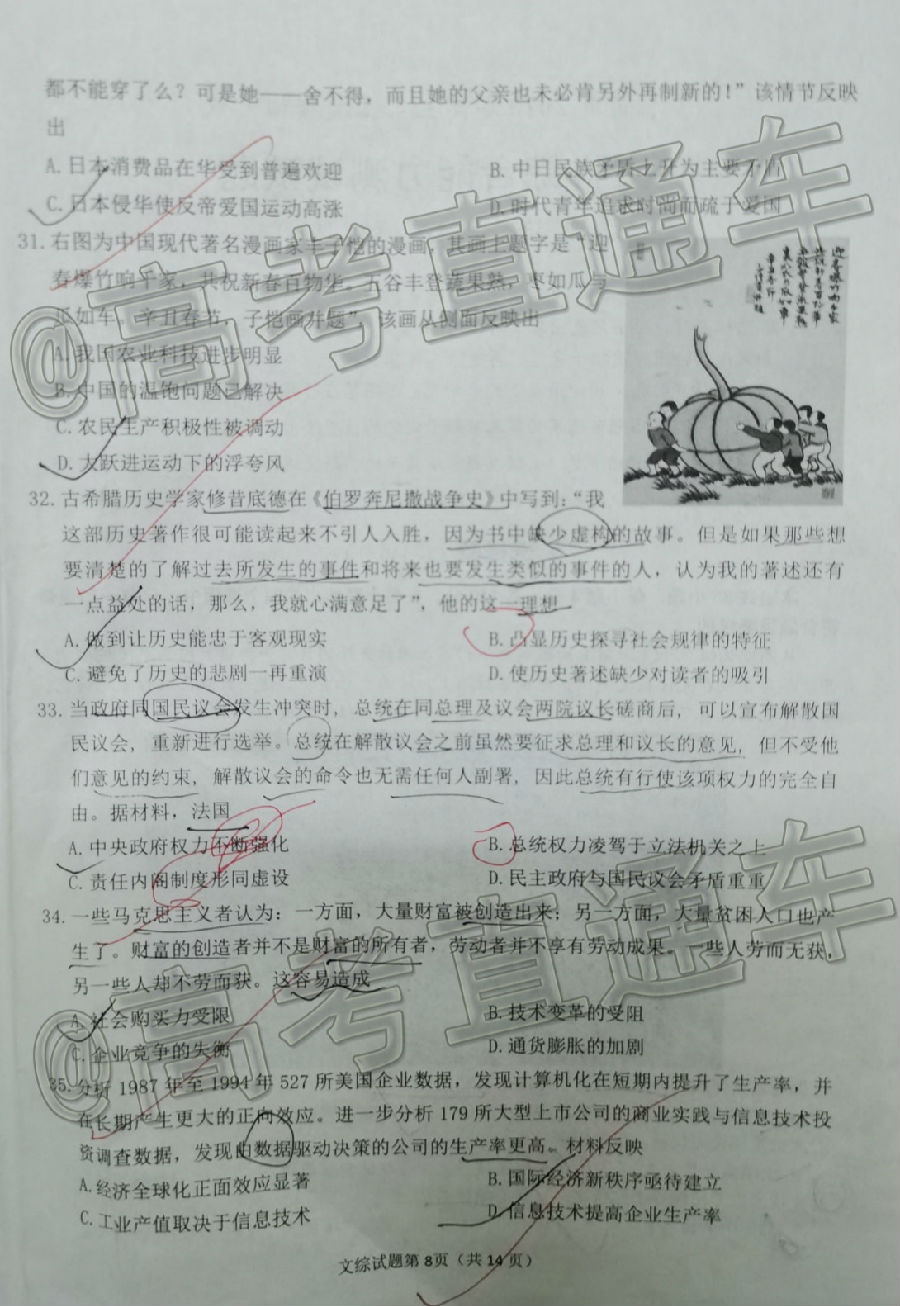 都不能穿了么？可是她——舍不得，而且她的父亲也未必肯另外再制新的！”该情节反映
出
A. 日本消费品在华受到普遍欢迎
B. 中日民族矛盾上升为主要矛盾
C. 日本侵华使反帝爱国运动高涨
D. 时代青年追求时尚而疏于爱国
31. 右图为中国现代著名漫画家丰子恺的漫画，其画上题字是“迎
春爆竹响千家，共祝新春百物华，五谷丰登蔬果熟，枣如瓜与
瓜如车。辛丑春节，子恺画并题”，该画从侧面反映出
A. 我国农业科技进步明显
B. 中国的温饱问题已解决
C. 农民生产积极性被调动
D. 大跃进运动下的浮夸风
32. 古希腊历史学家修昔底德在《伯罗奔尼撒战争史》中写到：“我
这部历史著作很可能读起来不引人入胜，因为书中缺少虚构的故事。但是如果那些想
要清楚的了解过去所发生的事件和将来也要发生类似的事件的人，认为我的著述还有
一点益处的话，那么，我就心满意足了”，他的这一理想
A. 做到让历史能忠于客观现实
B. 凸显历史探寻社会规律的特征
C. 避免了历史的悲剧一再重演
D. 使历史著述缺少对读者的吸引
33. 当政府同国民议会发生冲突时，总统在同总理及议会两院议长磋商后，可以宣布解散国
民议会，重新进行选举。总统在解散议会之前虽然要征求总理和议长的意见，但不受他
们意见的约束，解散议会的命令也无需任何人副署，因此总统有行使该项权力的完全自
由。据材料，法国
A. 中央政府权力不断强化
B. 总统权力凌驾于立法机关之上
C. 责任内阁制度形同虚设
D. 民主政府与国民议会矛盾重重
34. 一些马克思主义者认为：一方面，大量财富被创造出来；另一方面，大量贫困人口也产
生了。财富的创造者并不是财富的所有者，劳动者并不享有劳动成果。一些人劳而无获，
另一些人却不劳而获。这容易造成
A. 社会购买力受限
B. 技术变革的受阻
C. 企业竞争的失衡
D. 通货膨胀的加剧
35. 分析 1987 年至 1994 年 527 所美国企业数据，发现计算机化在短期内提升了生产率，并
在长期产生更大的正向效应。进一步分析 179 所大型上市公司的商业实践与信息技术投
资调查数据，发现由数据驱动决策的公司的生产率更高。材料反映
A. 经济全球化正面效应显著
B. 国际经济新秩序亟待建立
C. 工业产值取决于信息技术
D. 信息技术提高企业生产率
文综试题第 8页（共 14 页）
@高考直通车
@高考直通车